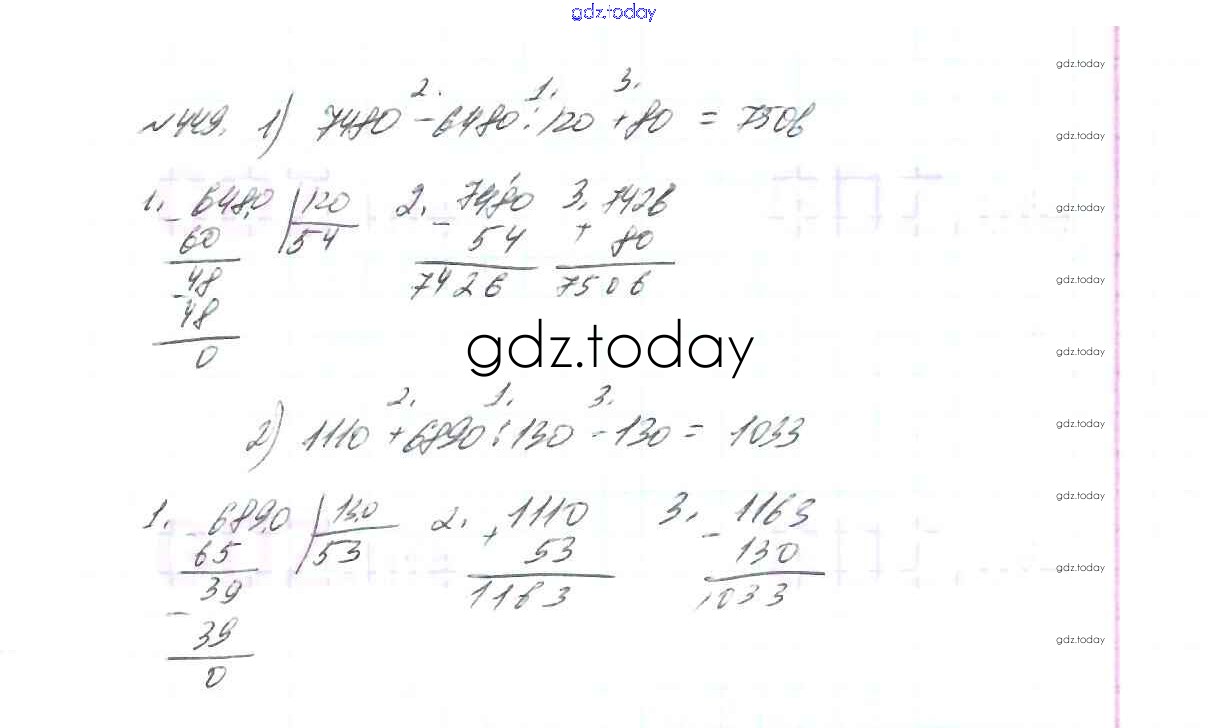 gdz.today
gdz.today
2. 1. 3.
№449. 1) 7480 - 6480 : 120 + 80 = 7506
gdz.today
1. 6480 | 120 2. 7480 3. 7426
gdz.today
- 60 | 54 - 54 + 80
48 7426 7506
gdz.today
- 48
0
gdz.today
gdz.today
2. 1. 3.
2) 1110 + 6890 : 130 - 130 = 1033
gdz.today
1. 6890 | 130 2. 1110 3. 1163
gdz.today
65 | 53 + 53 - 130
39 1163 1033
gdz.today
- 39
gdz.today
0